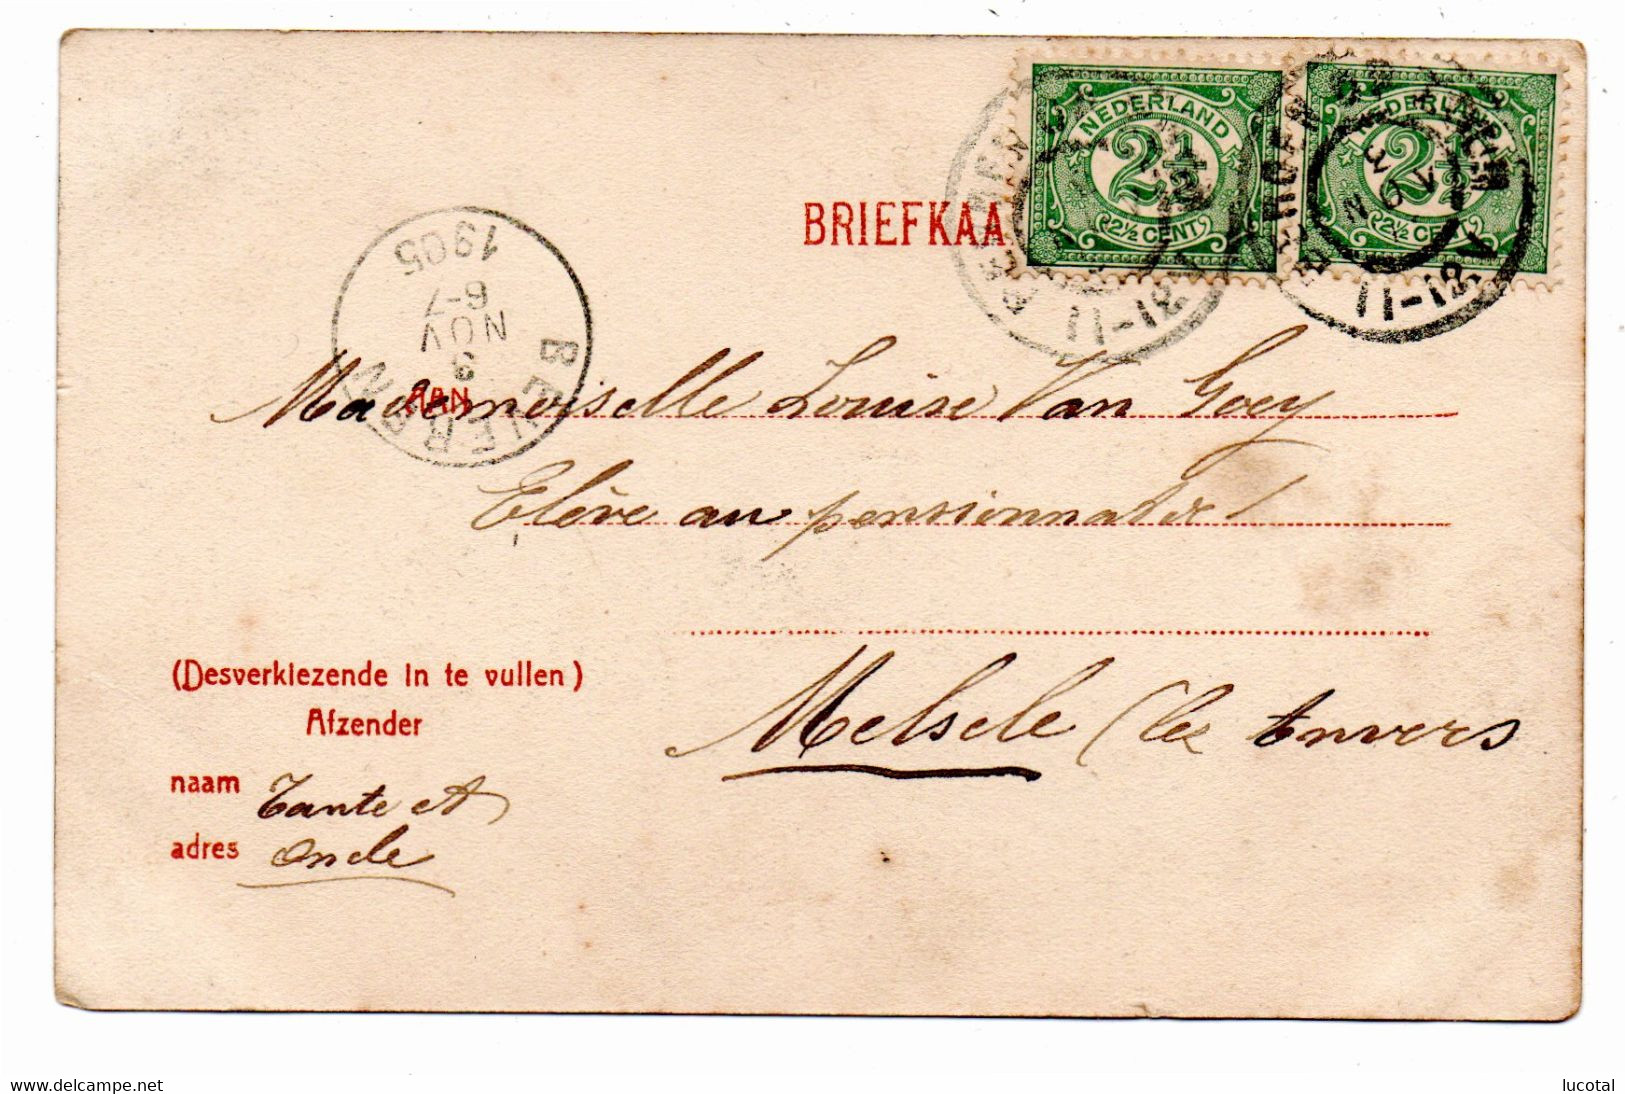 BRIEFKAA
NEDERLAND
2½
2½ CENT
NEDERLAND
2½
2½ CENT
11-12
3 NOV
11-12
BEVEREN
3
NOV
6-7
1905
AAN
Mademoiselle Louise Van Goey
Elève au pensionnat
Melsele (lez Anvers
(Desverkiezende in te vullen)
Afzender
naam Tante et
adres Oncle
www.delcampe.net
lucotal